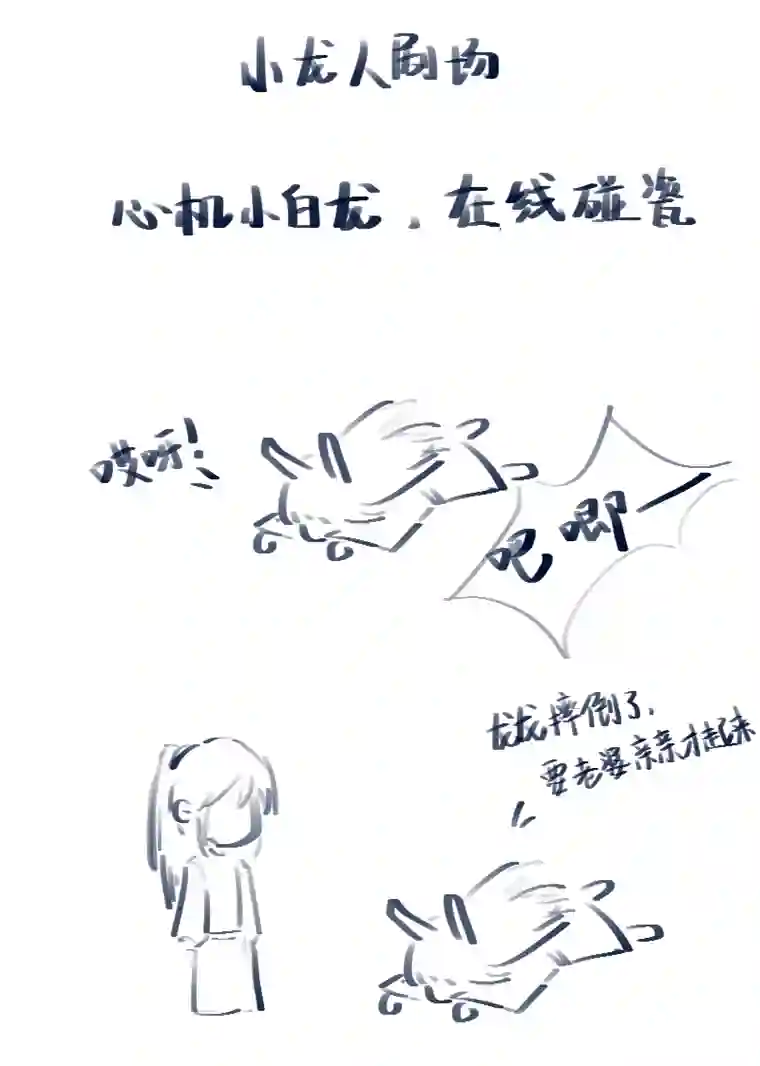 小龙人剧场
心机小白龙，在线碰瓷
哎呀！
吧唧一
龙龙摔倒了，
要老婆亲亲才起来